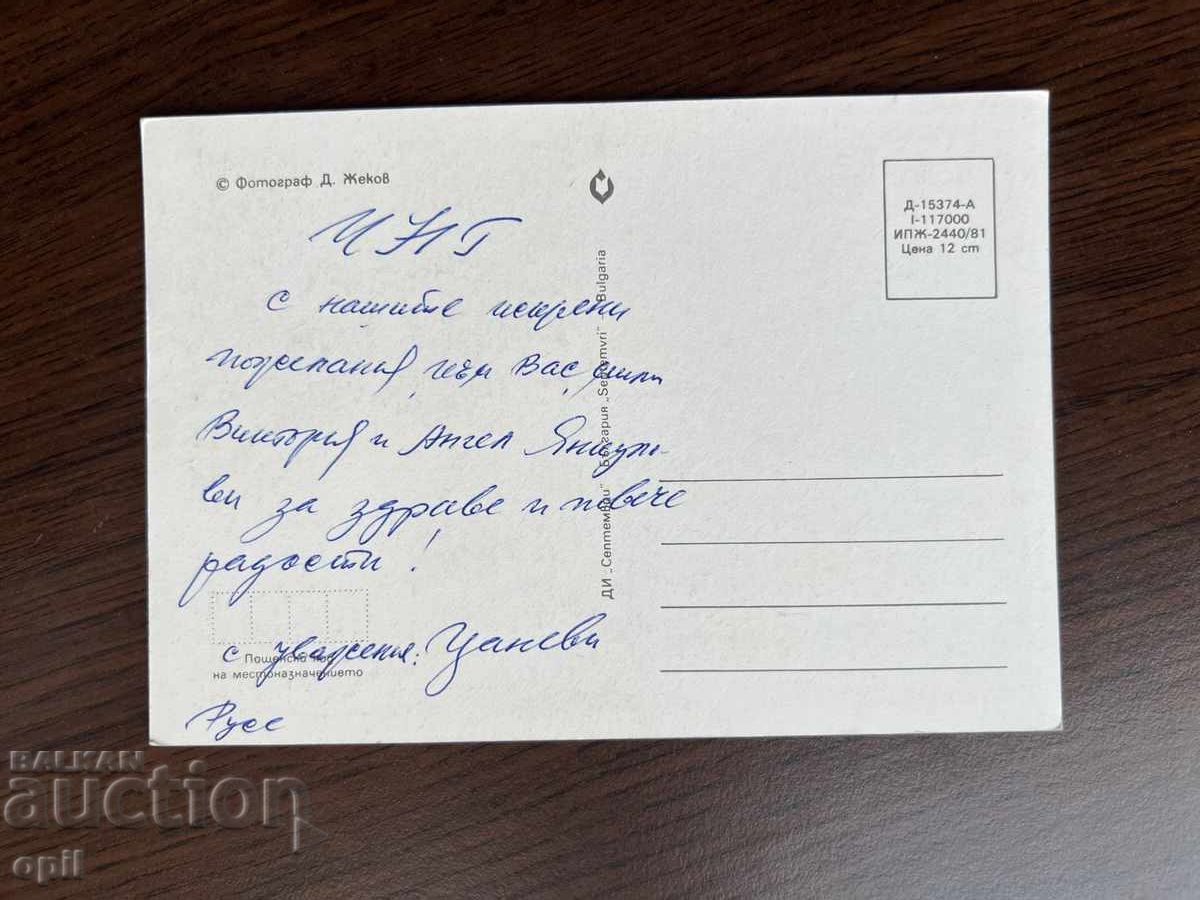 © Фотограф Д. Жеков
ЧНГ
с нашите искрени
пожелания към Вас, мили
Виктория и Ангел
ви за здраве и повече
радости!
с уважение: Цаневи
Русе
Пощенски код
на местоназначението
ДИ „Септември" България „Septemvri" – Bulgaria
Д-15374-А
I-117000
ИПЖ-2440/81
Цена 12 ст
BALKAN
auction
opil